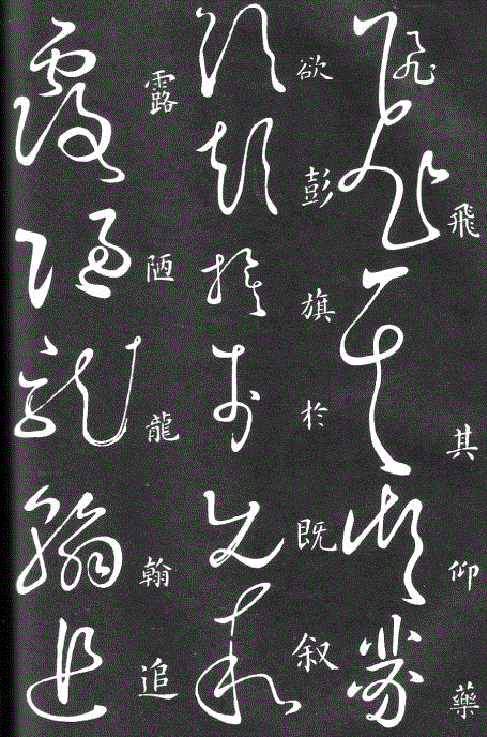 飛其仰藥
欲彭旗於既叙
露陋龍翰追